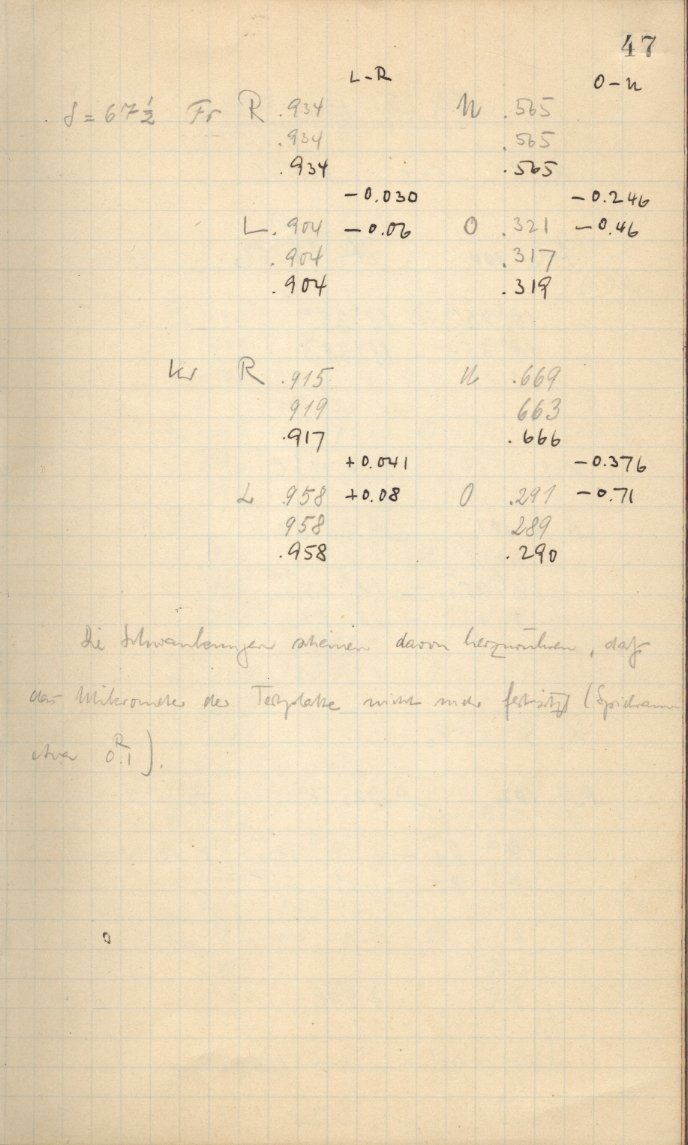 47
L-R O-U
δ = 67½ Fr R .934 U .565
.934 .565
.934 .565
-0.030 -0.246
L .904 -0.06 O .321 -0.46
.904 .317
.904 .319
Kr R .915 U .669
919 663
.917 .666
+0.041 -0.376
L 958 +0.08 O .291 -0.71
958 289
.958 .290
Die Schwankungen scheinen davon herzurühren, daß
das Mikrometer der Testplatte nicht mehr festsitzt (Spielraum
etwa 0.1).